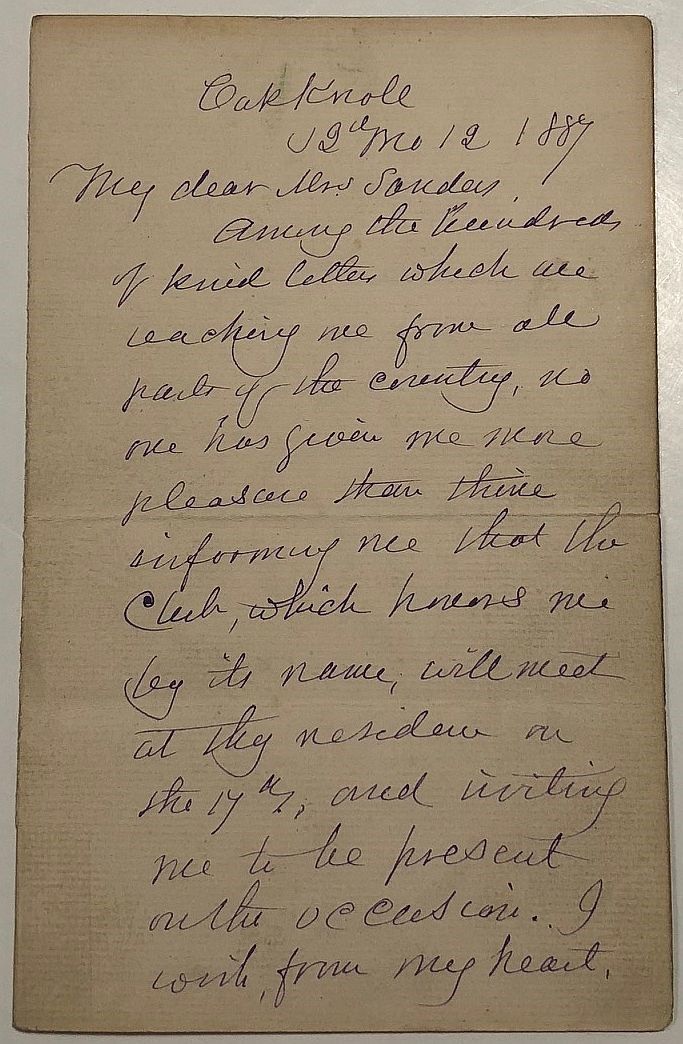 Oak Knoll
12th Mo 12 1887
My dear Mrs Sanders,
Among the hundreds
of kind letters which are
reaching me from all
parts of the country, no
one has given me more
pleasure than thine
informing me that the
Club, which honors me
by its name, will meet
at thy residence on
the 17th, and inviting
me to be present
on the occasion. I
wish, from my heart,